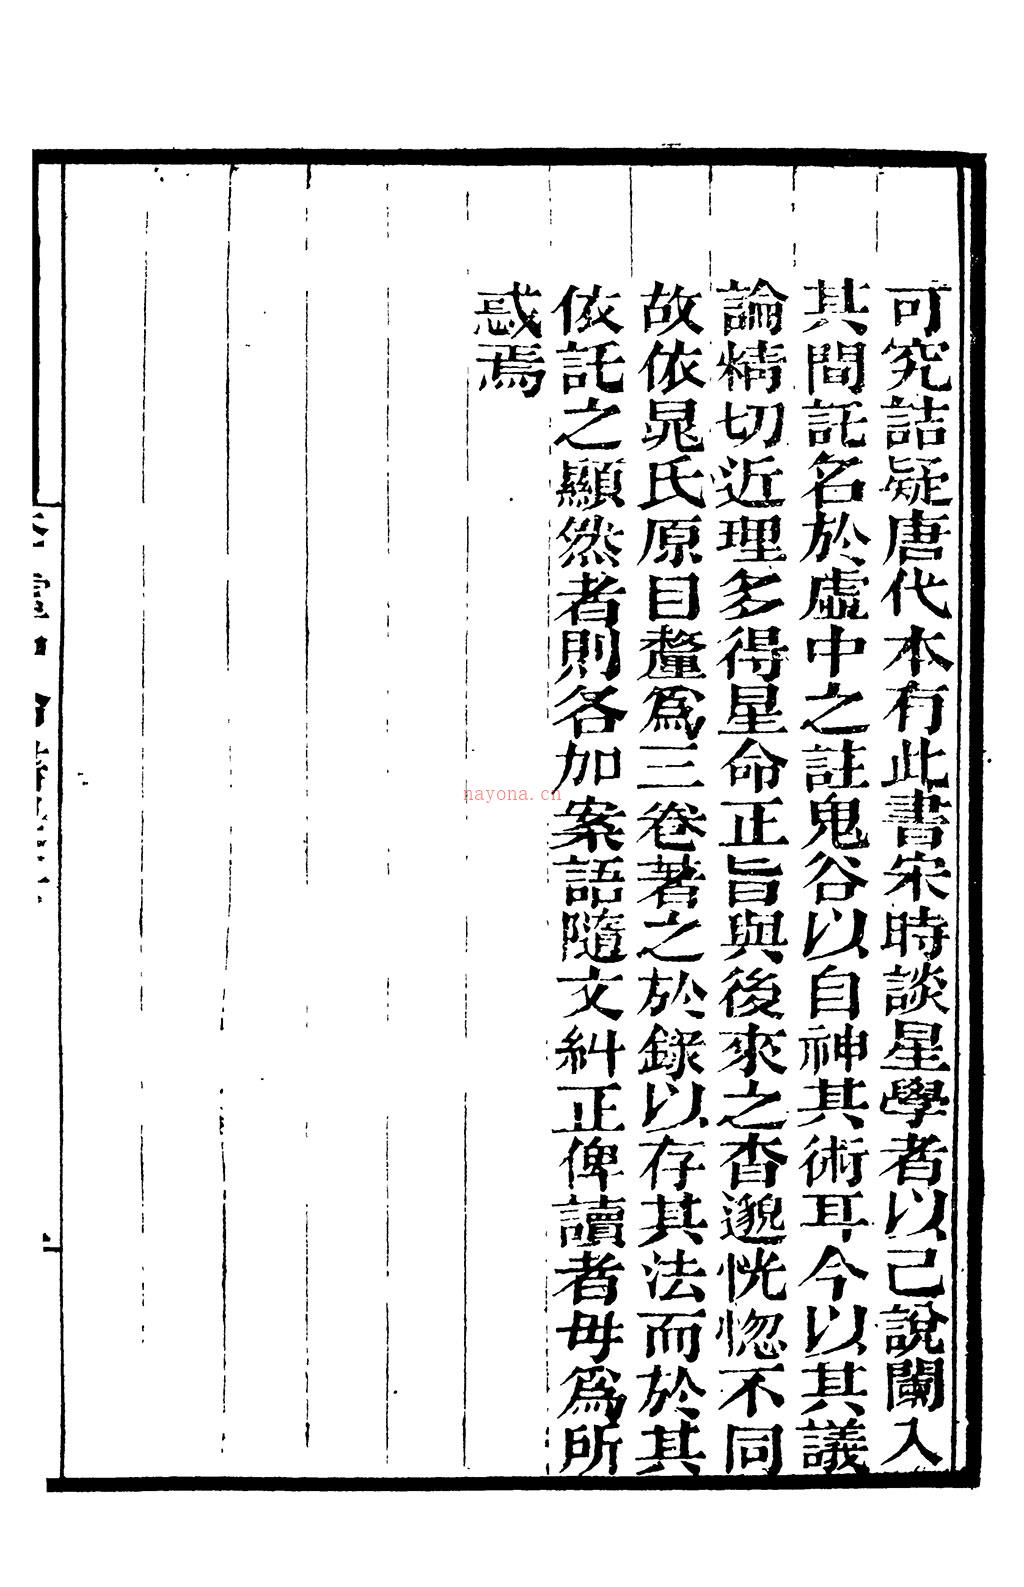 可究詰疑唐代本有此書宋時談星學者以己說闌入
其間託名於虛中之註鬼谷以自神其術耳今以其議
論精切近理多得星命正旨與後來之杳邈恍惚不同
故依晁氏原目釐為三卷著之於錄以存其法而於其
依託之顯然者則各加案語隨文糾正俾讀者毋為所
惑焉
nayona.cn